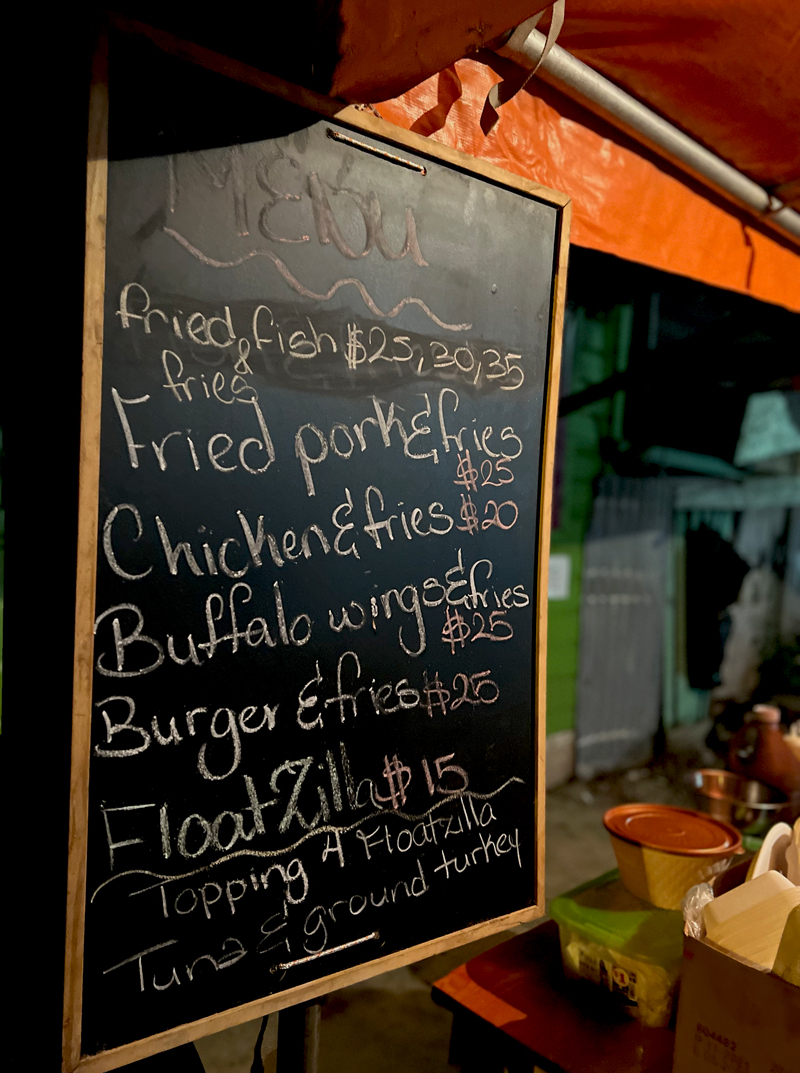 MENU
fried fish $25,30,35
& fries
Fried pork & fries
$25
Chicken & fries $20
Buffalo wings & fries
$25
Burger & fries $25
FloatZilla $15
Topping 4 Floatzilla
Tuna & ground turkey